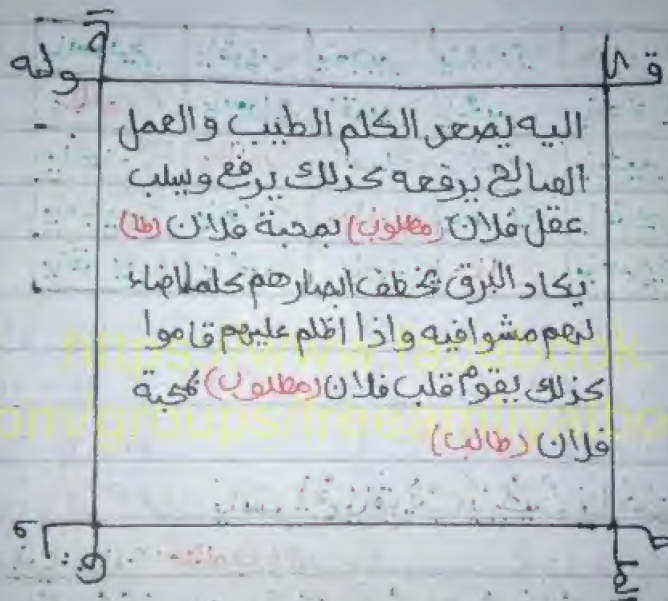 وله
ق
اليه يصعد الكلم الطيب والعمل
الصالح يرفعه كذلك يرفع ويسلب
عقل فلان (مطلوب) بمحبة فلان (طا)
يكاد البرق يخطف ابصارهم كلما اضاء
لهم مشوا فيه واذا اظلم عليهم قاموا
كذلك يقوم قلب فلان (مطلوب) بمحبة
فلان (طالب)
https://www.facebook
om/groups/freeamliyatboo